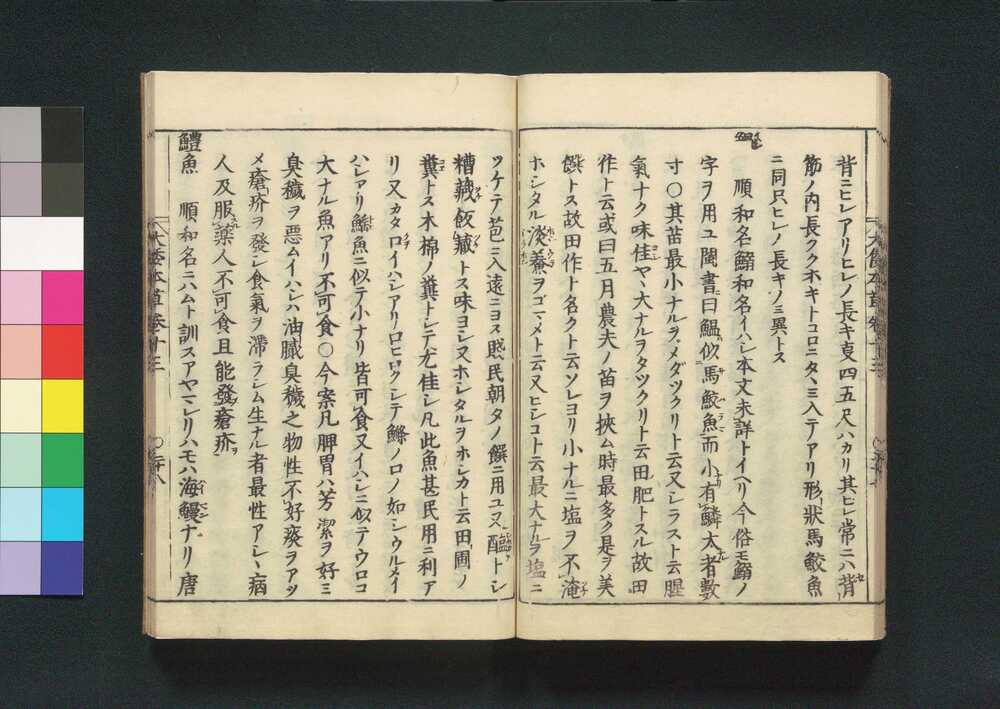 背ニヒレアリヒレノ長キ亊四五尺ハカリ其ヒレ常ニハ背
筋ノ内長クホキトコロニタヽミ入テアリ形狀馬鮫魚
ニ同只ヒレノ長キノミ異トス
鰛
順和名鰯和名イハシ本文未詳トイヘリ今俗モ鰯ノ
字ヲ用ユ閩書曰鰛似馬鮫魚而小有鱗大者數
寸〇其苗最小ナルヲメダツクリト云又シラストモ云腥
氣ナク味佳ヤヽ大ナルヲタツクリト云田肥トスル故田
作ト云或曰五月農夫ノ苗ヲ挾ム時最多ク是ヲ美
饌トス故田作ト名クト云ソレヨリ小ナルニ塩ヲ不淹
ホシタル淡鯗ヲゴマメト云又ヒシコト云最大ナルヲ塩ニ
ツケテ苞ニ入遠ニヨス賤民朝夕ノ饌ニ用ユ又醢トシ
糟藏飯藏トス味ヨシ又ホシタルヲホシカト云田圃ノ
糞トス木棉ノ糞トシテ尤佳シ凡此魚甚民用ニ利ア
リ又カタロイハシアリ口ヒロクシテ鰷ノ口ノ如シウルメイ
ハシアリ鯔魚ニ似テ小ナリ皆可食又イハシニ似テウロコ
大ナル魚アリ不可食〇今案凡脾胃ハ芳潔ヲ好ミ
臭穢ヲ惡ムイハシハ油膩臭穢之物性不好痰ヲアツ
メ瘡疥ヲ發シ食氣ヲ滯ラシム生ナル者最性アシヽ病
人及服藥人不可食且能發瘡疥
鱧魚
順和名ニハムト訓スアヤマレリハモハ海鰻ナリ唐
大倭本草卷十三
〇二十八